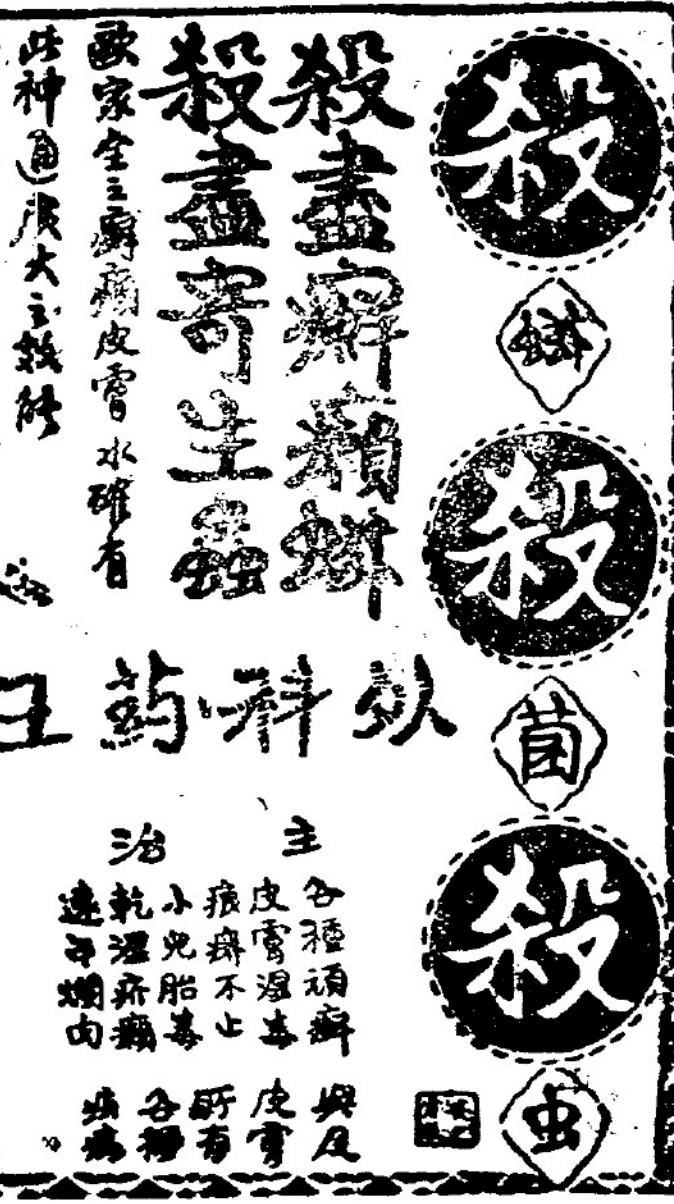 殺蟒殺菌殺虫
殺盡癬癩蟒
殺盡寄生蟲
歐家全之癬癩皮膚水確有
此神通廣大之效能
外科药王
主治
各種頑癬
皮膚湿毒
痕癢不止
小兒胎毒
乾湿疥癩
連年爛肉
與及
皮膚
所有
各種